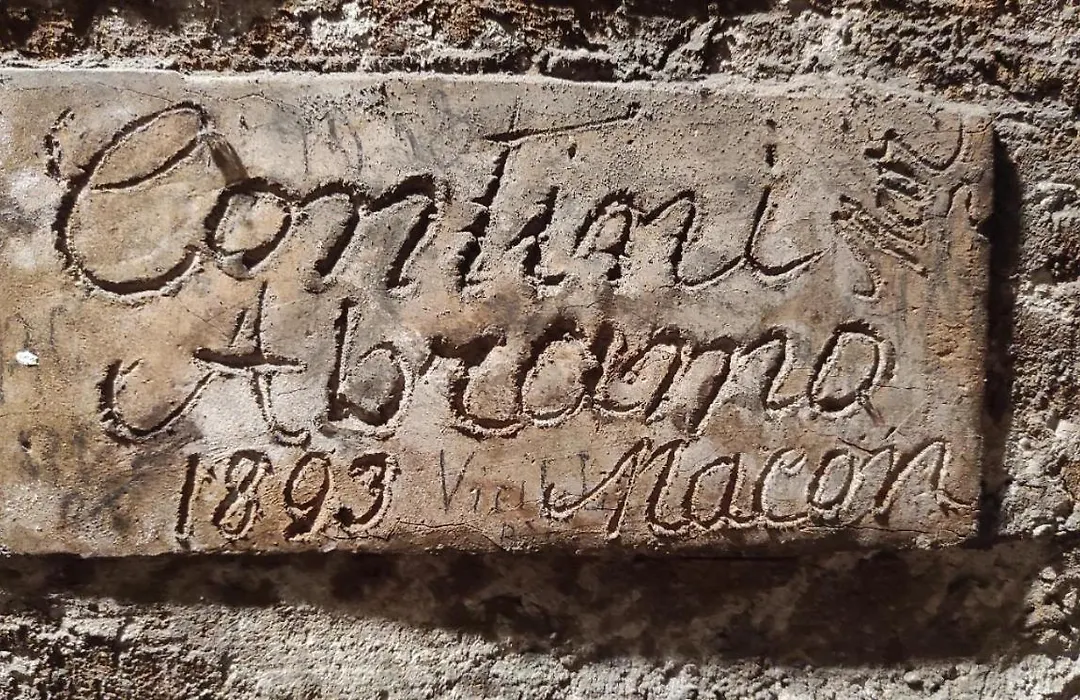 ConTini
Abramo
1893 Macon